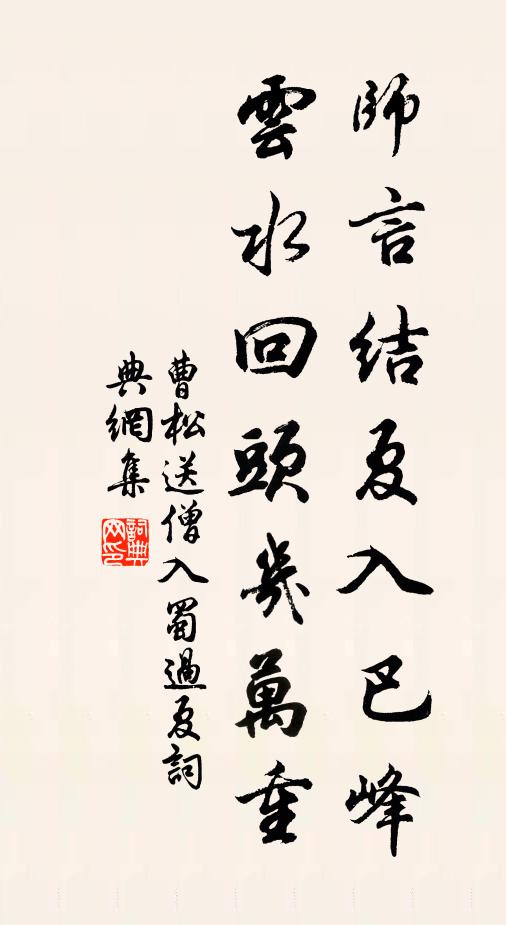 師言結夏入巴峰
雲水回頭幾萬重
曹松送僧入蜀過夏詞
典網集
詞典網印